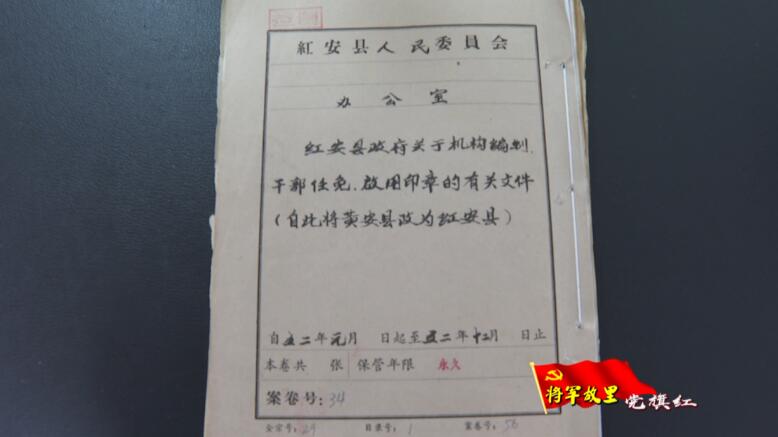 紅安县人民委員会
办公室
红安县政府关于机构编制、
干部任免、启用印章的有关文件
（自此将黄安县改为红安县）
自五二年元月 日起至五二年十二月 日止
本卷共 张 保管年限 永久
案卷号：34
全宗号：29 目录号：1 案卷号：56
将军故里
党旗红